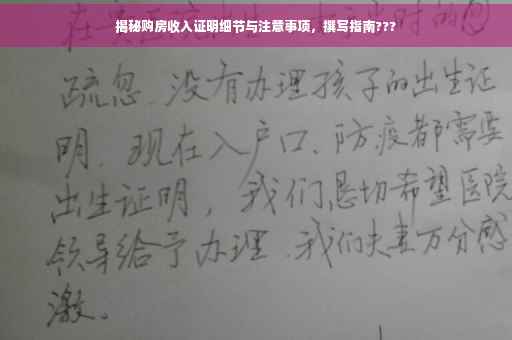 揭秘购房收入证明细节与注意事项，撰写指南???
疏忽.没有办理孩子的出生证
明.现在入户口、防疫都需要
出生证明，我们恳切希望医院
领导给予办理.我们夫妻万分感
激。